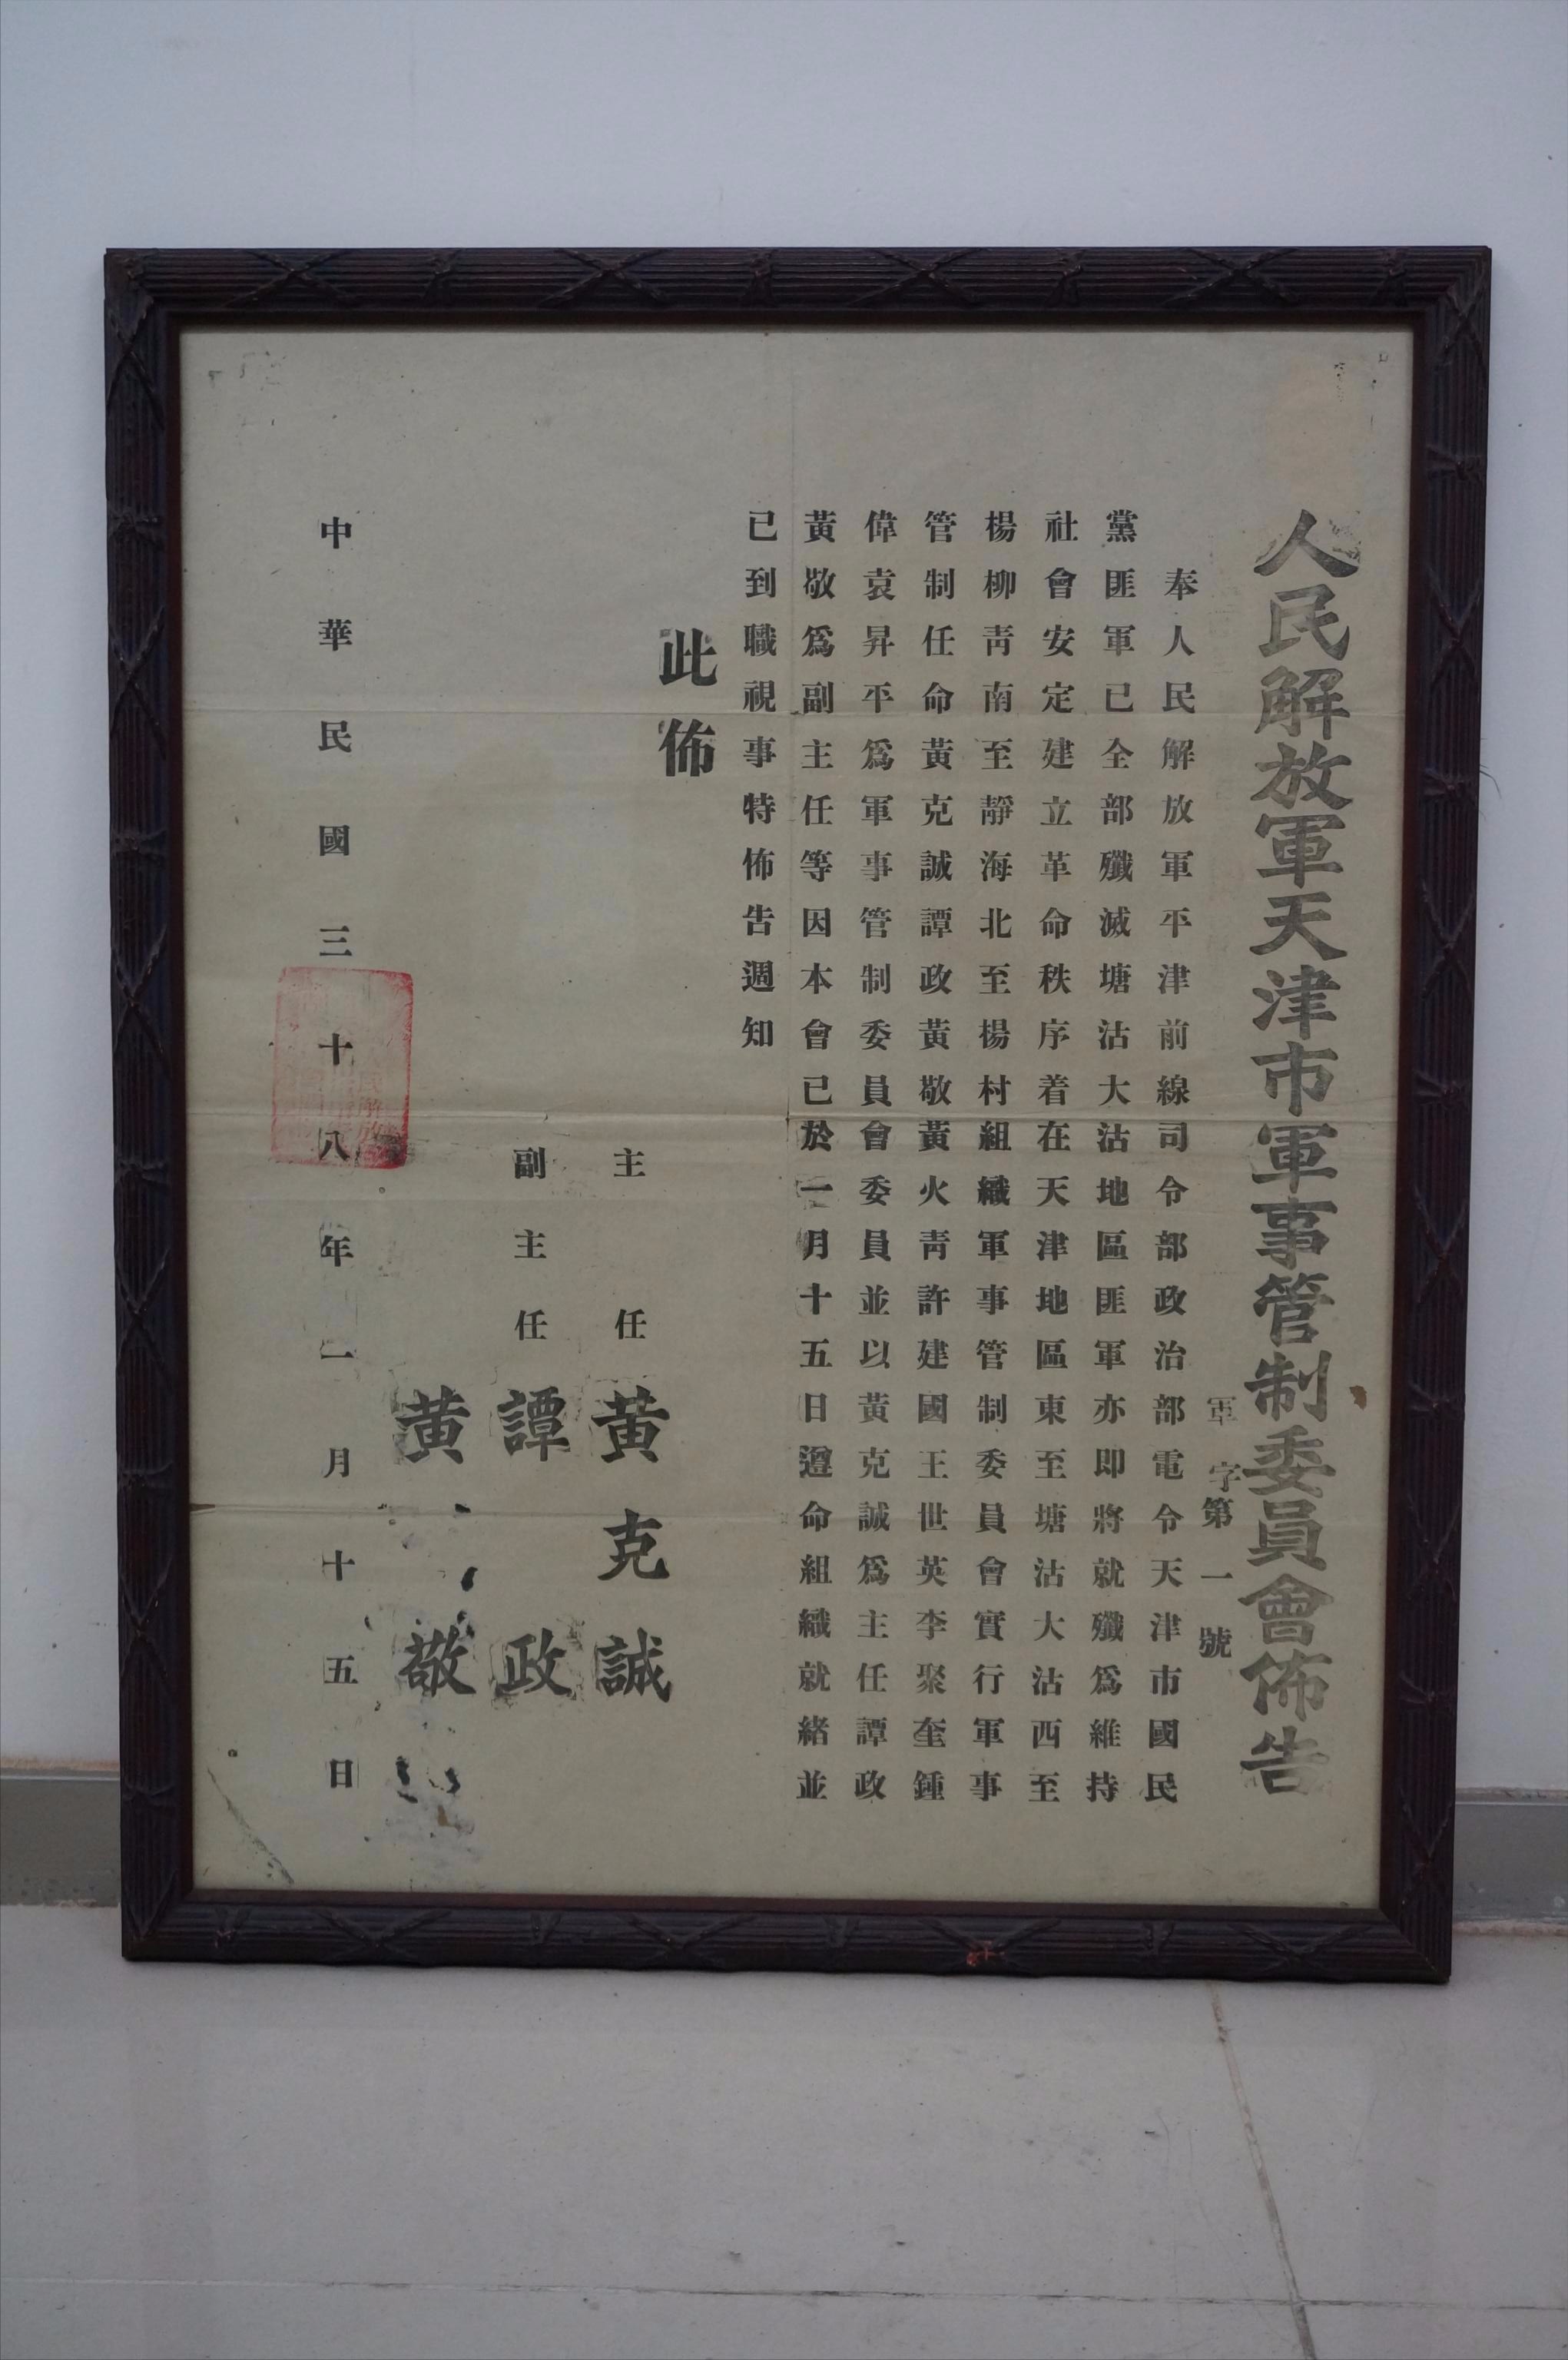 人民解放軍天津市軍事管制委員會佈告
軍字第一號
奉人民解放軍平津前線司令部政治部電令天津市國民
黨匪軍已全部殲滅塘沽大沽地區匪軍亦即將就殲爲維持
社會安定建立革命秩序着在天津地區東至塘沽大沽西至
楊柳靑南至靜海北至楊村組織軍事管制委員會實行軍事
管制任命黃克誠譚政黃敬黃火靑許建國王世英李聚奎鍾
偉袁昇平爲軍事管制委員會委員並以黃克誠爲主任譚政
黃敬爲副主任等因本會已於一月十五日遵命組織就緒並
已到職視事特佈告週知
此佈
主任 黃克誠
副主任 譚政
黃敬
中華民國三十八年一月十五日